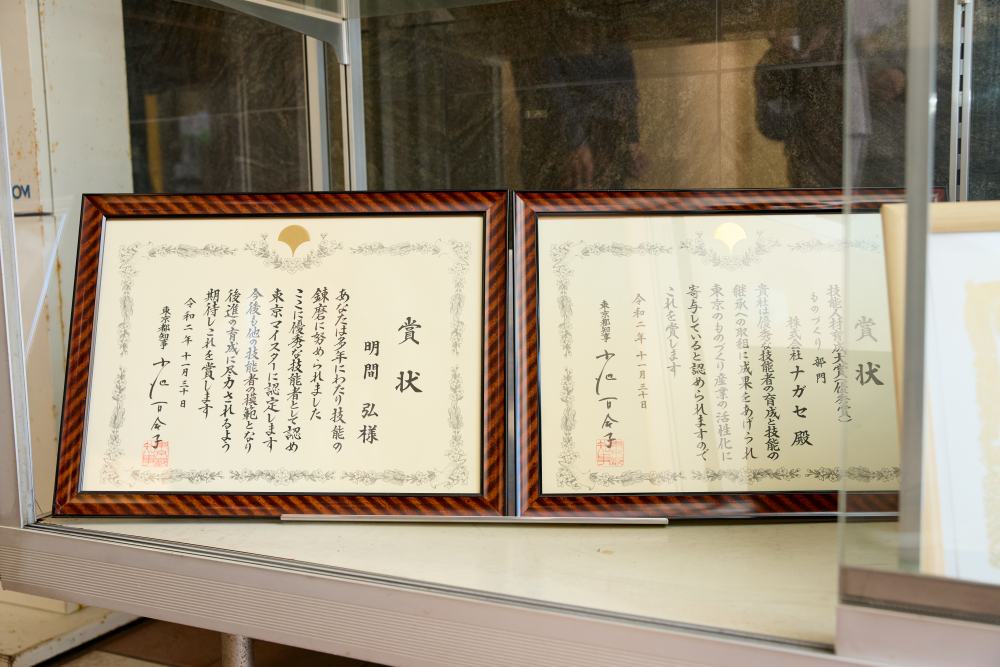 賞状
明間 弘 様
あなたは多年にわたり技能の
錬磨に努められました
ここに優秀な技能者として認め
東京マイスターに認定します
今後も他の技能者の模範となり
後進の育成に尽力されるよう
期待しこれを賞します
令和二年十一月三十日
東京都知事 小池百合子
賞状
技能人材育成大賞(優秀賞)
ものづくり部門
株式会社ナガセ 殿
貴社は優秀な技能者の育成と技能の
継承への取組に成果をあげられ
東京のものづくり産業の活性化に
寄与していると認められますので
これを賞します
令和二年十一月三十日
東京都知事 小池百合子
OM